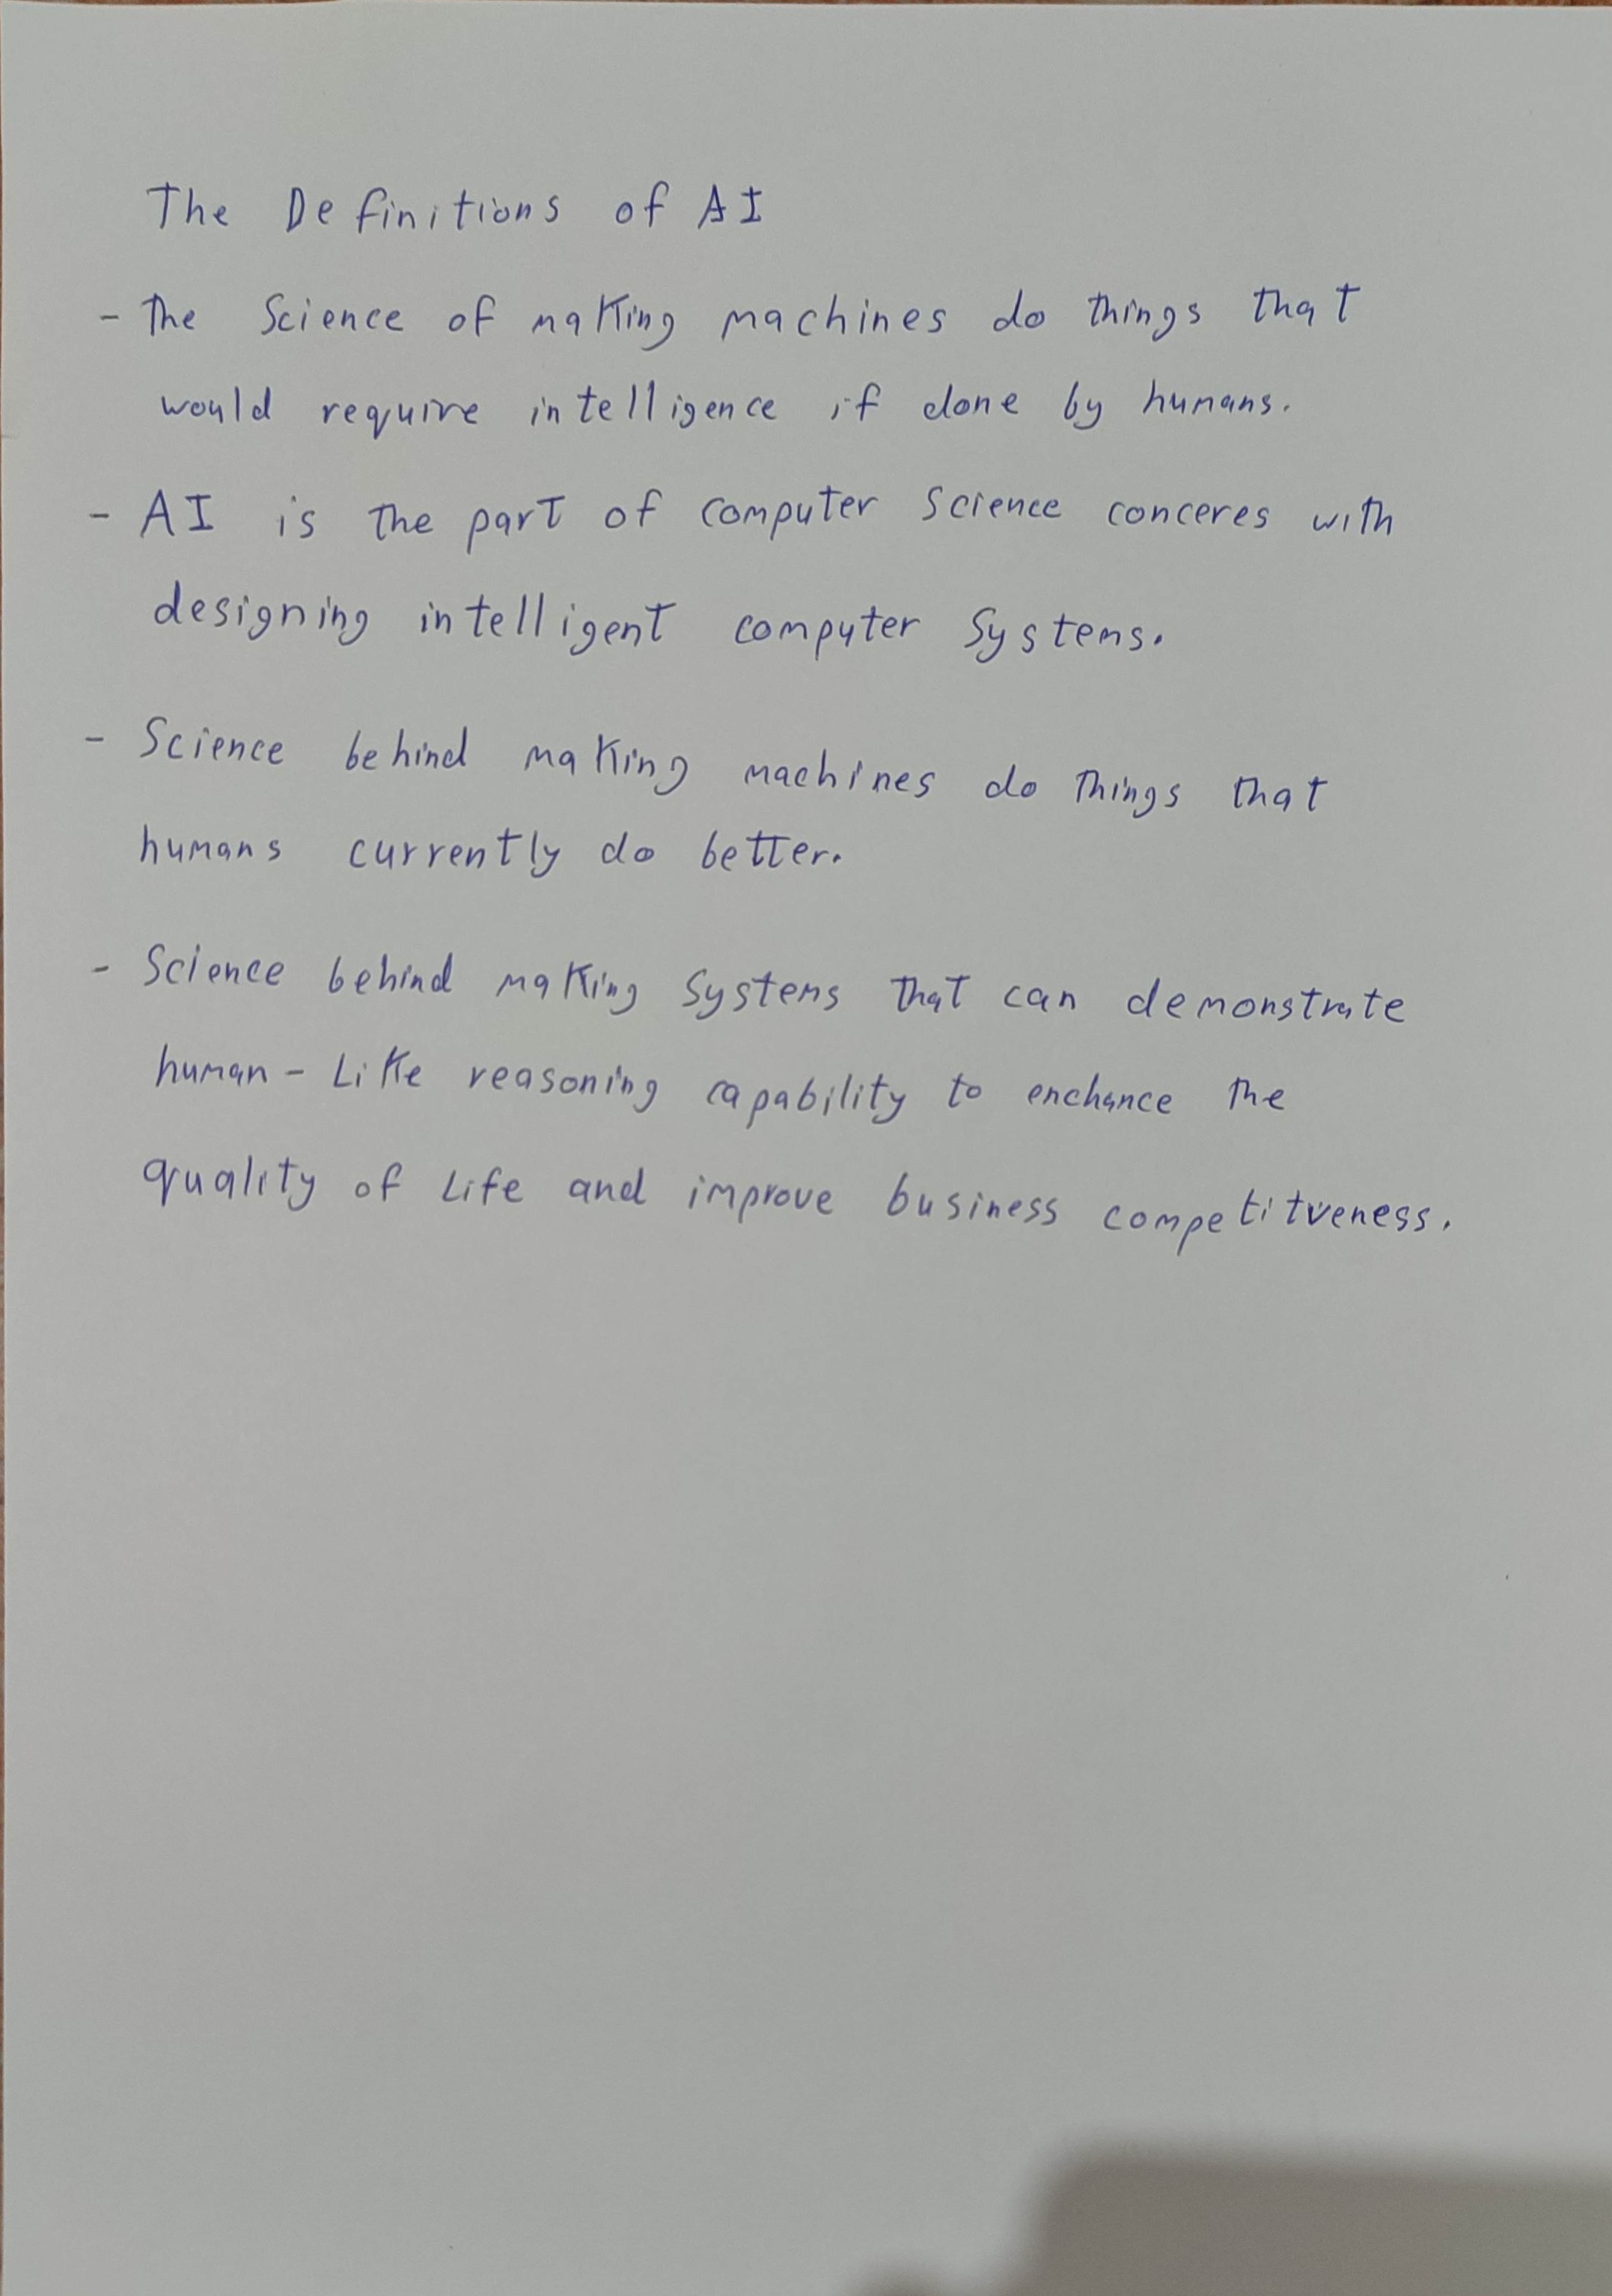 The Definitions of AI
- The Science of making machines do things that
would require intelligence if done by humans.
- AI is the part of computer Science conceres with
designing intelligent computer Systems.
- Science behind making machines do things that
humans currently do better.
- Science behind making Systems that can demonstrate
human - Like reasoning capability to enchance the
quality of Life and improve business competitveness.